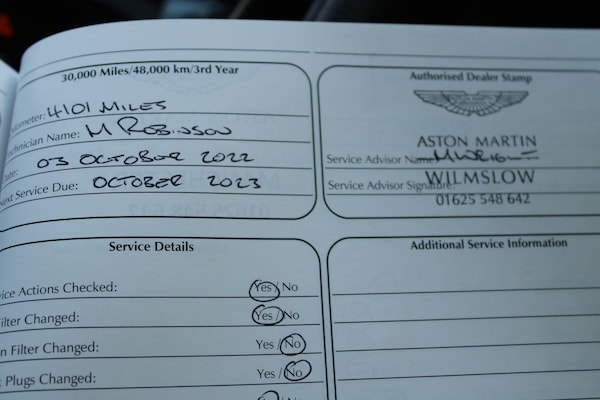 30,000 Miles/48,000 km/3rd Year
ometer: 4101 MILES
echnician Name: M ROBINSON
Date: 03 OCTOBER 2022
Next Service Due: OCTOBER 2023
Authorised Dealer Stamp
ASTON MARTIN
Service Advisor Name:
Service Advisor Signature:
WILMSLOW
01625 548 642
Service Details
ice Actions Checked: Yes / No
ilter Changed: Yes / No
n Filter Changed: Yes / No
Plugs Changed: Yes / No
Additional Service Information